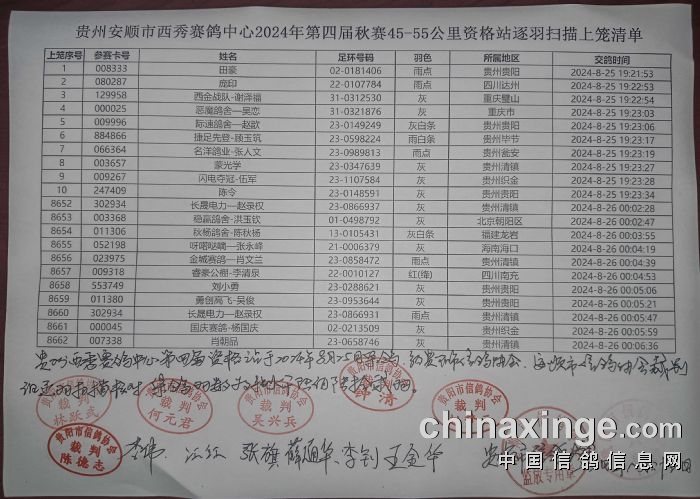 贵州安顺市西秀赛鸽中心2024年第四届秋赛45-55公里资格站逐羽扫描上笼清单
上笼序号 参赛卡号 姓名 足环号码 羽色 所属地区 交鸽时间
1 008333 田豪 02-0181406 雨点 贵州贵阳 2024-8-25 19:21:53
2 080287 庞印 22-0107784 雨点 四川达州 2024-8-25 19:22:53
3 129958 西金战队-谢泽福 31-0312530 灰 重庆璧山 2024-8-25 19:22:54
4 000025 恶魔鸽舍—吴恋 31-0321876 灰 重庆市 2024-8-25 19:23:03
5 009996 际速鸽舍—赵歆 23-0149249 灰白条 贵州贵阳 2024-8-25 19:23:06
6 884866 捷足先登-顾玉筑 23-0598224 雨白条 贵州毕节 2024-8-25 19:23:17
7 066364 名洋鸽业-张人文 23-0989813 雨点 贵州瓮安 2024-8-25 19:23:19
8 003657 蒙光学 23-0347639 灰 贵州清镇 2024-8-25 19:23:27
9 009267 闪电夺冠-伍军 23-1107584 灰 贵州织金 2024-8-25 19:23:28
10 247409 陈令 23-0148591 灰 贵州贵阳 2024-8-25 19:23:34
8652 302934 长晟电力—赵录权 23-0866937 灰 贵州清镇 2024-8-26 00:02:28
8653 003368 稳赢鸽舍-洪玉钦 01-0498792 灰 北京朝阳区 2024-8-26 00:02:47
8654 011306 秋杨鸽舍-陈秋扬 13-0105431 灰白条 福建龙岩 2024-8-26 00:03:55
8655 052198 呀喏哒嘀—张永峰 21-0006379 灰 海南海口 2024-8-26 00:04:19
8656 023975 金城赛鸽—肖文兰 23-0858472 雨点 贵州清镇 2024-8-26 00:04:39
8657 009318 睿豪公棚-李清泉 22-0010127 红(绛) 四川南充 2024-8-26 00:04:53
8658 553749 刘小勇 23-0288621 灰 贵州贵阳 2024-8-26 00:05:21
8659 011380 勇创高飞-吴俊 23-0953644 灰 贵州贵阳 2024-8-26 00:05:47
8660 302934 长晟电力—赵录权 23-0866913 雨点 贵州清镇 2024-8-26 00:06:21
8661 000045 国庆赛鸽-杨国庆 02-0213509 灰 贵州织金 2024-8-26 00:05:59
8662 007338 肖朝品 23-0658746 灰 贵州清镇 2024-8-26 00:06:36
贵州西秀赛鸽中心第四届资格站于2024年8月25日
贵阳市信鸽协会 裁判 林跃武
贵阳市信鸽协会 裁判 何元君
贵阳市信鸽协会 裁判 吴兴兵
贵阳市信鸽协会 裁判
贵阳市信鸽协会 裁判 陈德志
李伟 张旗 薛通华 李钊 王金华
监放专用章
chinaxinge.com
中国信鸽信息网